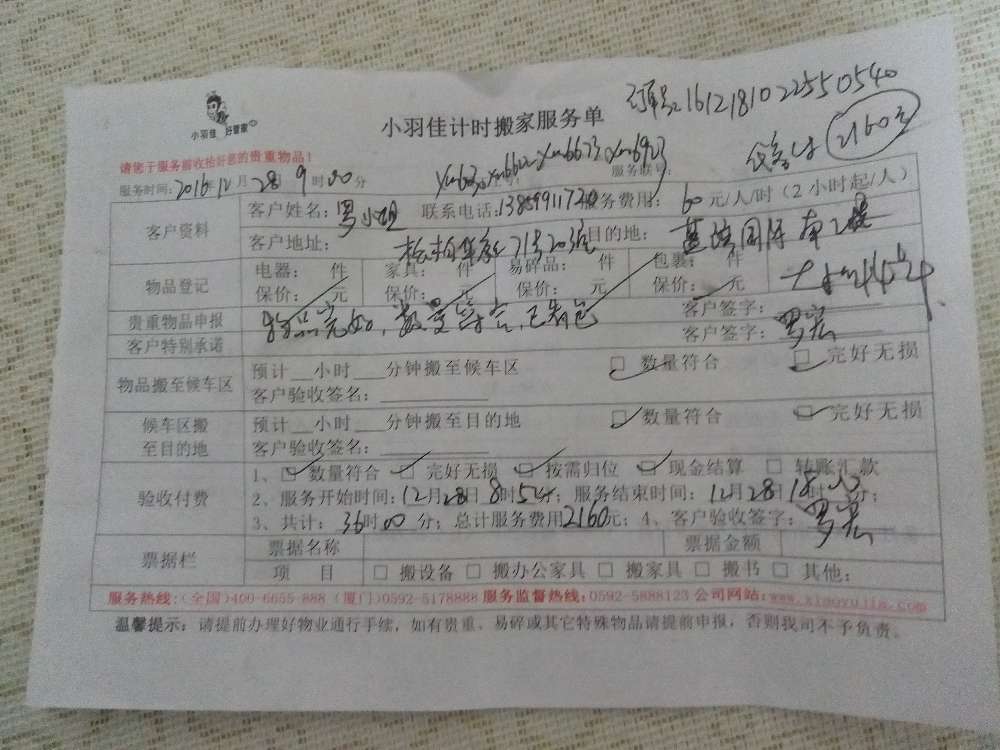 订单号:161218102255 0540
小羽佳 好管家
小羽佳计时搬家服务单
2160元
请您于服务前收拾好您的贵重物品!
服务时间:2016年12月28日9时00分 服务联号:
客户资料 客户姓名:罗小姐 联系电话: 服务费用:60元/人/时(2小时起/人)
客户地址: 目的地:
物品登记 电器: 件 家具: 件 易碎品: 件 包裹: 件
保价: 元 保价: 元 保价: 元 保价: 元
贵重物品申报 物品完好,数量符合,已打包 客户签字:
客户特别承诺 客户签字:
物品搬至候车区 预计__小时___分钟搬至候车区 数量符合 完好无损
客户验收签名:
候车区搬至目的地 预计__小时___分钟搬至目的地 数量符合 完好无损
客户验收签名:
验收付费 1、 数量符合 完好无损 按需归位 现金结算 转账汇款
2、服务开始时间:12月28日8时5分;服务结束时间:12月28日18时
3、共计:36时00分;总计服务费用2160元;4、客户验收签字:
票据栏 票据名称 票据金额
项 目 搬设备 搬办公家具 搬家具 搬书 其他:
服务热线:(全国)400-6655-888 (厦门)0592-5178888 服务监督热线:0592-5888123 公司网站:www.xiaoyujia.com
温馨提示:请提前办理好物业通行手续,如有贵重、易碎或其它特殊物品请提前申报,否则我司不予负责。